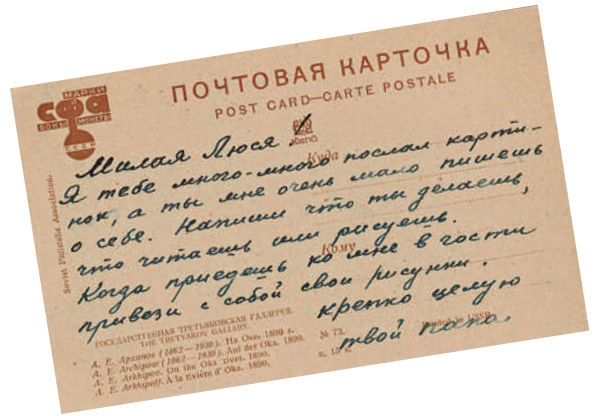 МАРКИ
СФА
БОНЫ МОНЕТЫ
СССР
ПОЧТОВАЯ КАРТОЧКА
POST CARD—CARTE POSTALE
Soviet Philatelic Association.
Милая Люся!
Куда
Я тебе много-много послал карти-
нок, а ты мне очень мало пишешь
о себе. Напиши что ты делаешь,
что читаешь или рисуешь.
Кому
Когда приедешь ко мне в гости
привози с собой свои рисунки.
крепко целую
твой папа.
ГОСУДАРСТВЕННАЯ ТРЕТЬЯКОВСКАЯ ГАЛЛЕРЕЯ.
THE TRETYAKOV GALLERY.
А. Е. Архипов (1862—1930). На Оке. 1890 г.
A. E. Archipow (1862—1930). Auf der Oka. 1890.
A. E. Arkhipov. On the Oka river. 1890.
A. E. Arkhipoff. À la rivière d' Oka. 1890.
№ 73.
Printed in USSR